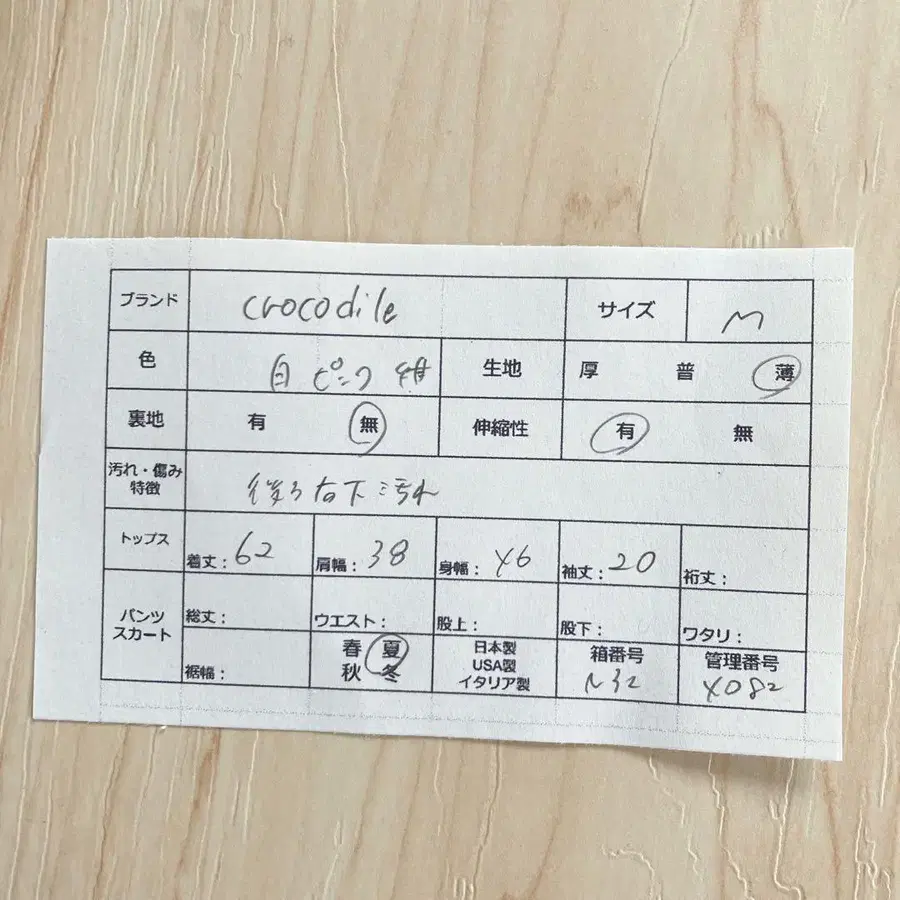 ブランド crocodile サイズ M
色 白 ピンク 紺 生地 厚 普 薄
裏地 有 無 伸縮性 有 無
汚れ・傷み
特徴 後ろ右下汚れ
トップス 着丈：62 肩幅：38 身幅：46 袖丈：20 裄丈：
パンツ
スカート 総丈： ウエスト： 股上： 股下： ワタリ：
裾幅： 春 夏 日本製 箱番号 管理番号
秋 冬 USA製 N32 4082
イタリア製